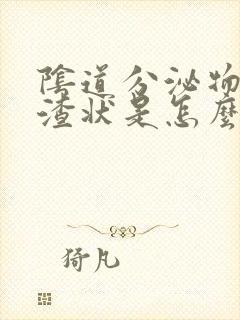 陰道分泌物
渣狀是怎麼
猗凡